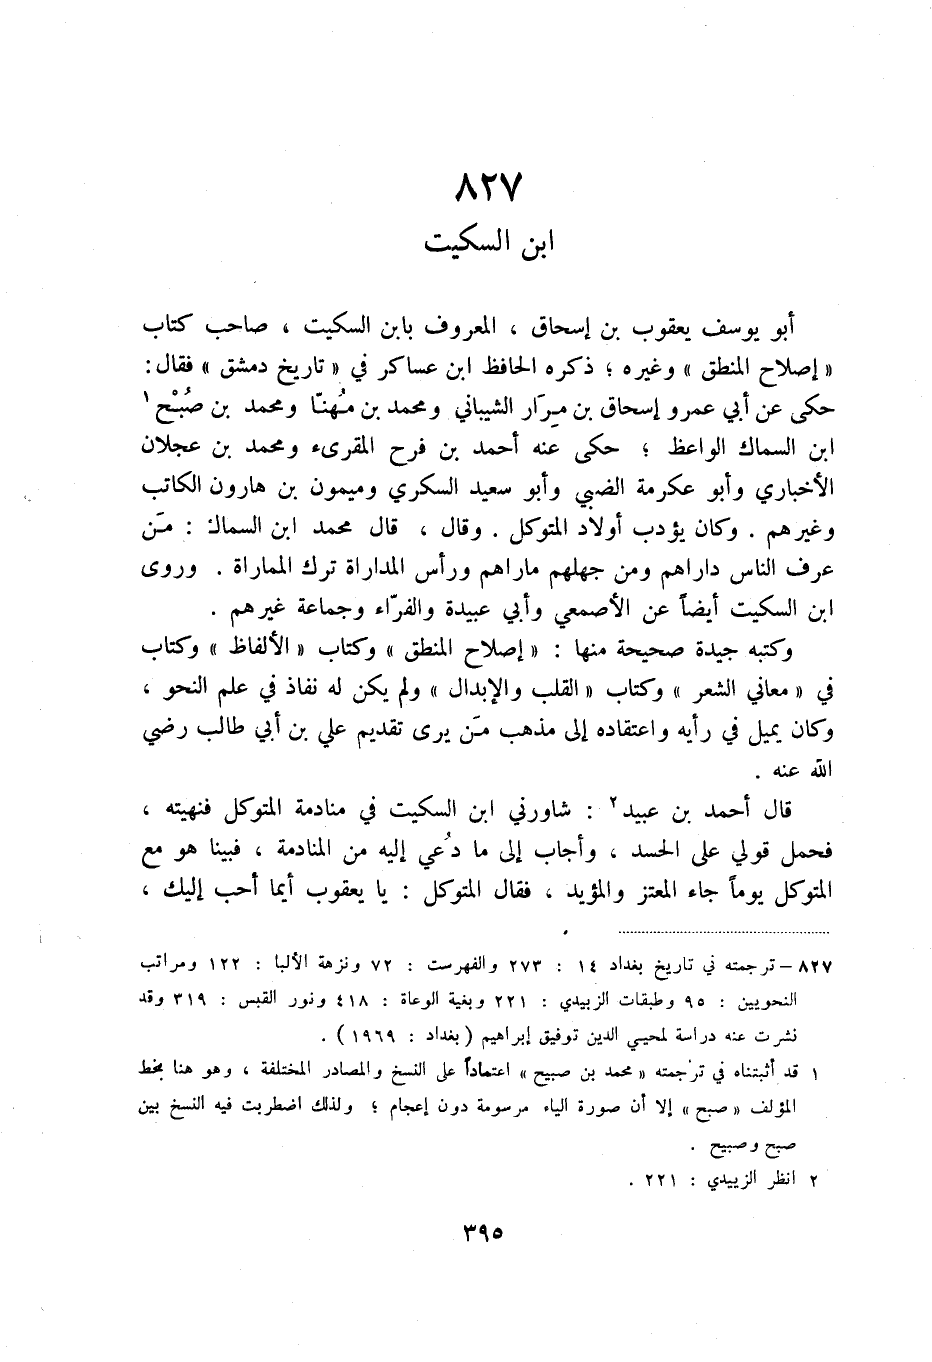 ٨٢٧
ابن السكيت
أبو يوسف يعقوب بن إسحاق ، المعروف بابن السكيت ، صاحب كتاب
« إصلاح المنطق » وغيره ؛ ذكره الحافظ ابن عساكر في « تاريخ دمشق » فقال :
حكى عن أبي عمرو إسحاق بن مِرَار الشيباني ومحمد بن مُهنّا ومحمد بن صُبْح١
ابن السماك الواعظ ؛ حكى عنه أحمد بن فرح المقرىء ومحمد بن عجلان
الأخباري وأبو عكرمة الضبي وأبو سعيد السكري وميمون بن هارون الكاتب
وغيرهم . وكان يؤدب أولاد المتوكل . وقال ، قال محمد ابن السماك : مَن
عرف الناس داراهم ومن جهلهم ماراهم ورأس المداراة ترك المماراة . وروى
ابن السكيت أيضاً عن الأصمعي وأبي عبيدة والفرّاء وجماعة غيرهم .
وكتبه جيدة صحيحة منها : « إصلاح المنطق » وكتاب « الألفاظ » وكتاب
في « معاني الشعر » وكتاب « القلب والإبدال » ولم يكن له نفاذ في علم النحو ،
وكان يميل في رأيه واعتقاده إلى مذهب مَن يرى تقديم علي بن أبي طالب رضي
الله عنه .
قال أحمد بن عبيد٢ : شاورني ابن السكيت في منادمة المتوكل فنهيته ،
فحمل قولي على الحسد ، وأجاب إلى ما دُعي إليه من المنادمة ، فبينا هو مع
المتوكل يوماً جاء المعتز والمؤيد ، فقال المتوكل : يا يعقوب أيما أحب إليك ،
٨٢٧ – ترجمته في تاريخ بغداد ١٤ : ٢٧٣ والفهرست : ٧٢ ونزهة الألبا : ١٢٢ ومراتب
النحويين : ٩٥ وطبقات الزبيدي : ٢٢١ وبغية الوعاة : ٤١٨ ونور القبس : ٣١٩ وقد
نشرت عنه دراسة لمحيي الدين توفيق إبراهيم ( بغداد : ١٩٦٩ ) .
١ قد أثبتناه في ترجمته « محمد بن صبيح » اعتماداً على النسخ والمصادر المختلفة ، وهو هنا بخط
المؤلف « صبح » إلا أن صورة الياء مرسومة دون إعجام ؛ ولذلك اضطربت فيه النسخ بين
صبح وصبيح .
٢ انظر الزبيدي : ٢٢١ .
٣٩٥